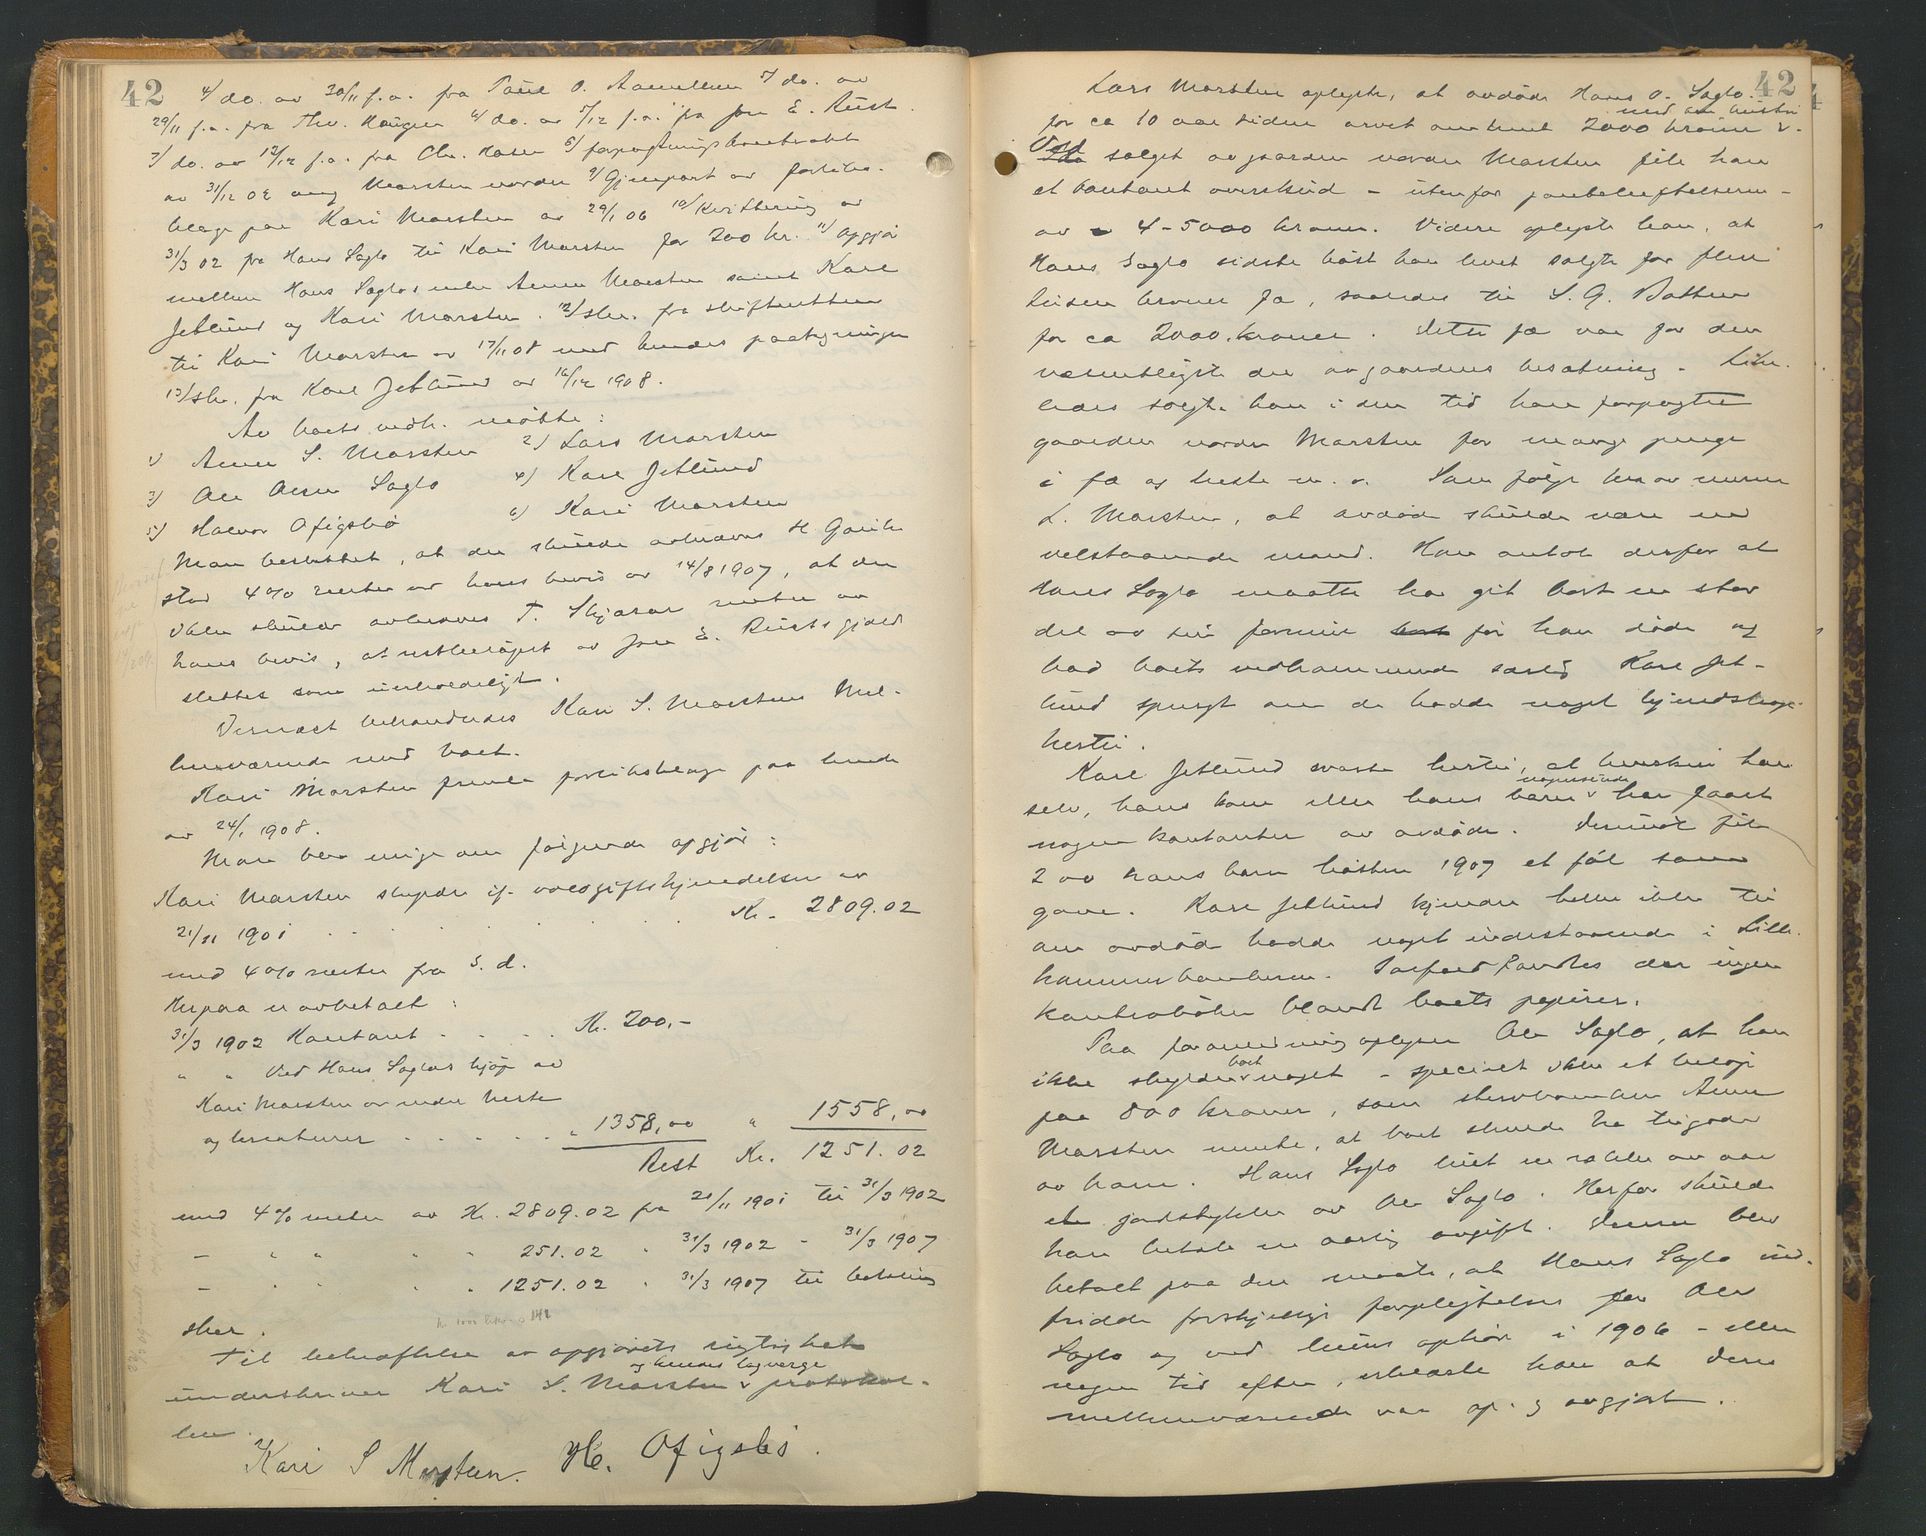 42
4/ do. av 30/11 f.a. fra Paul O. Aamellem 5/ do. av
29/11 f.a. fra Thv. Haugen 6/ do. av 5/12 f.a. fra Jon E. Rust.
7/ do. av 12/12 f.a. fra Chr. Hosen 8/ forpagtningskontrakt
av 31/12 02 ang Morsten nordre 9/ Gjenpart av forliks-
klage paa Kari Morsten av 29/1 06 10/ Kvittering av
31/3 02 fra Hans Saglo til Kari Morsten for 200 kr. 11/ Opgjør
mellem Hans Saglos enke Anne Morsten samt Karl
Jetlund og Kari Morsten. 12/ skr. fra skifteretten
til Kari Morsten av 17/11 08 med hendes paategninger
13/ skr. fra Karl Jetlund av 16/12 1908.
Av boets vedk. møtte:
1) Anne S. Morsten 2) Lars Morsten
3) Ole Olsen Saglo 4) Karl Jetlund
5) Halvor Ofigsbø 6) Kari Morsten
Man besluttet, at der skulde avkræves H Gjörlie
stad 4% renter av hans bevis av 14/8 1907, at der
ikke skulde avkræves T. Skjaras renter av
hans bevis, at restbeløpet av Jon E. Rusts gjæld
slettes som uerholdeligt.
Dernæst behandledes Kari S. Morstens Mel-
lemværende med boet.
Kari Morsten fremla forliksklage paa hende
av 24/1 1908.
Man blev enige om følgende opgjør:
Kari Morsten skylder if. voldgiftskjendelse av
21/11 1901 . . . . . . . Kr. 2809.02
med 4% renter fra s. d.
Herpaa er avbetalt:
31/3 1902 Kontant . . . . Kr. 200,-
" " Ved Hans Saglos kjøp av
Kari Morsten av endre heste
og kreaturer . . . . . . " 1358,00 " 1558,00
Rest Kr. 1251.02
med 4% renter av Kr. 2809.02 fra 21/11 1901 til 31/3 1902
— " " " " 251.02 " 31/3 1902 - 31/3 1907
— " " " " 1251.02 " 31/3 1907 til betaling
sker.
Til bekræftelse av opgjørets rigtighet
og hendes lagverge
underskriver Kari S. Morsten v protokol-
len.
Kari S Morsten. H. Ofigsbø.
42
Lars Morsten oplyste, at avdøde Hans O. Saglo
med sin hustru
for ca 10 aar siden arvet omkring 2000 kroner v.
Ved salget av gaarden nordre Morsten fik han
et kontant overskud - utenfor pantehæftelserne -
av 4-5000 kroner. Videre oplyste han, at
Hans Saglo sidste høst han levet solgte for flere
tusen kroner fæ, saaledes til S. G. Bakken
for ca 2000 kroner. Dette fæ var for den
væsentligste del av gaardens besætning. Like-
ledes solgte han i den tid han forpagtet
gaarden nordre Morsten for mange penge
i fæ og heste m. v. Som følge herav mener
L. Morsten, at avdøde skulde være en
velstaaende mand. Han antok derfor at
Hans Saglo maatte ha git bort en stor
del av sin formue før han døde og
bad boets vedkommende særlig Karl Jet-
lund spurgt om de hadde noget kjendskap
hertil.
Karl Jetlund svarte hertil, at hverken han
nogensinde
selv, hans kone eller hans børn v har faaet
nogen kontanter av avdøde. Derimot fik
2 av hans barn høsten 1907 et føl som
gave. Karl Jetlund kjender heller ikke til
om avdøde hadde noget indestaaende i Lille-
hammerbankerne. Iafald fandtes der ingen
kontrabøker blandt boets papirer.
Paa foranledning oplyser Ole Saglo, at han
boet
ikke skylder v noget - specielt ikke et beløp
paa 800 kroner, som stervboenken Anne
Morsten mente, at boet skulde ha tilgode
av ham. Hans Saglo leiet en række av aar
et jordstykke av Ole Saglo. Herfor skulde
han betale en aarlig avgift. Denne blev
betalt paa den maate, at Hans Saglo ind-
fridde forskjellige forpligtelser for Ole
Saglo og ved leiens ophør i 1906 - eller
nogen tid efter, erklærte han at deres
mellemværende var op- og avgjort.